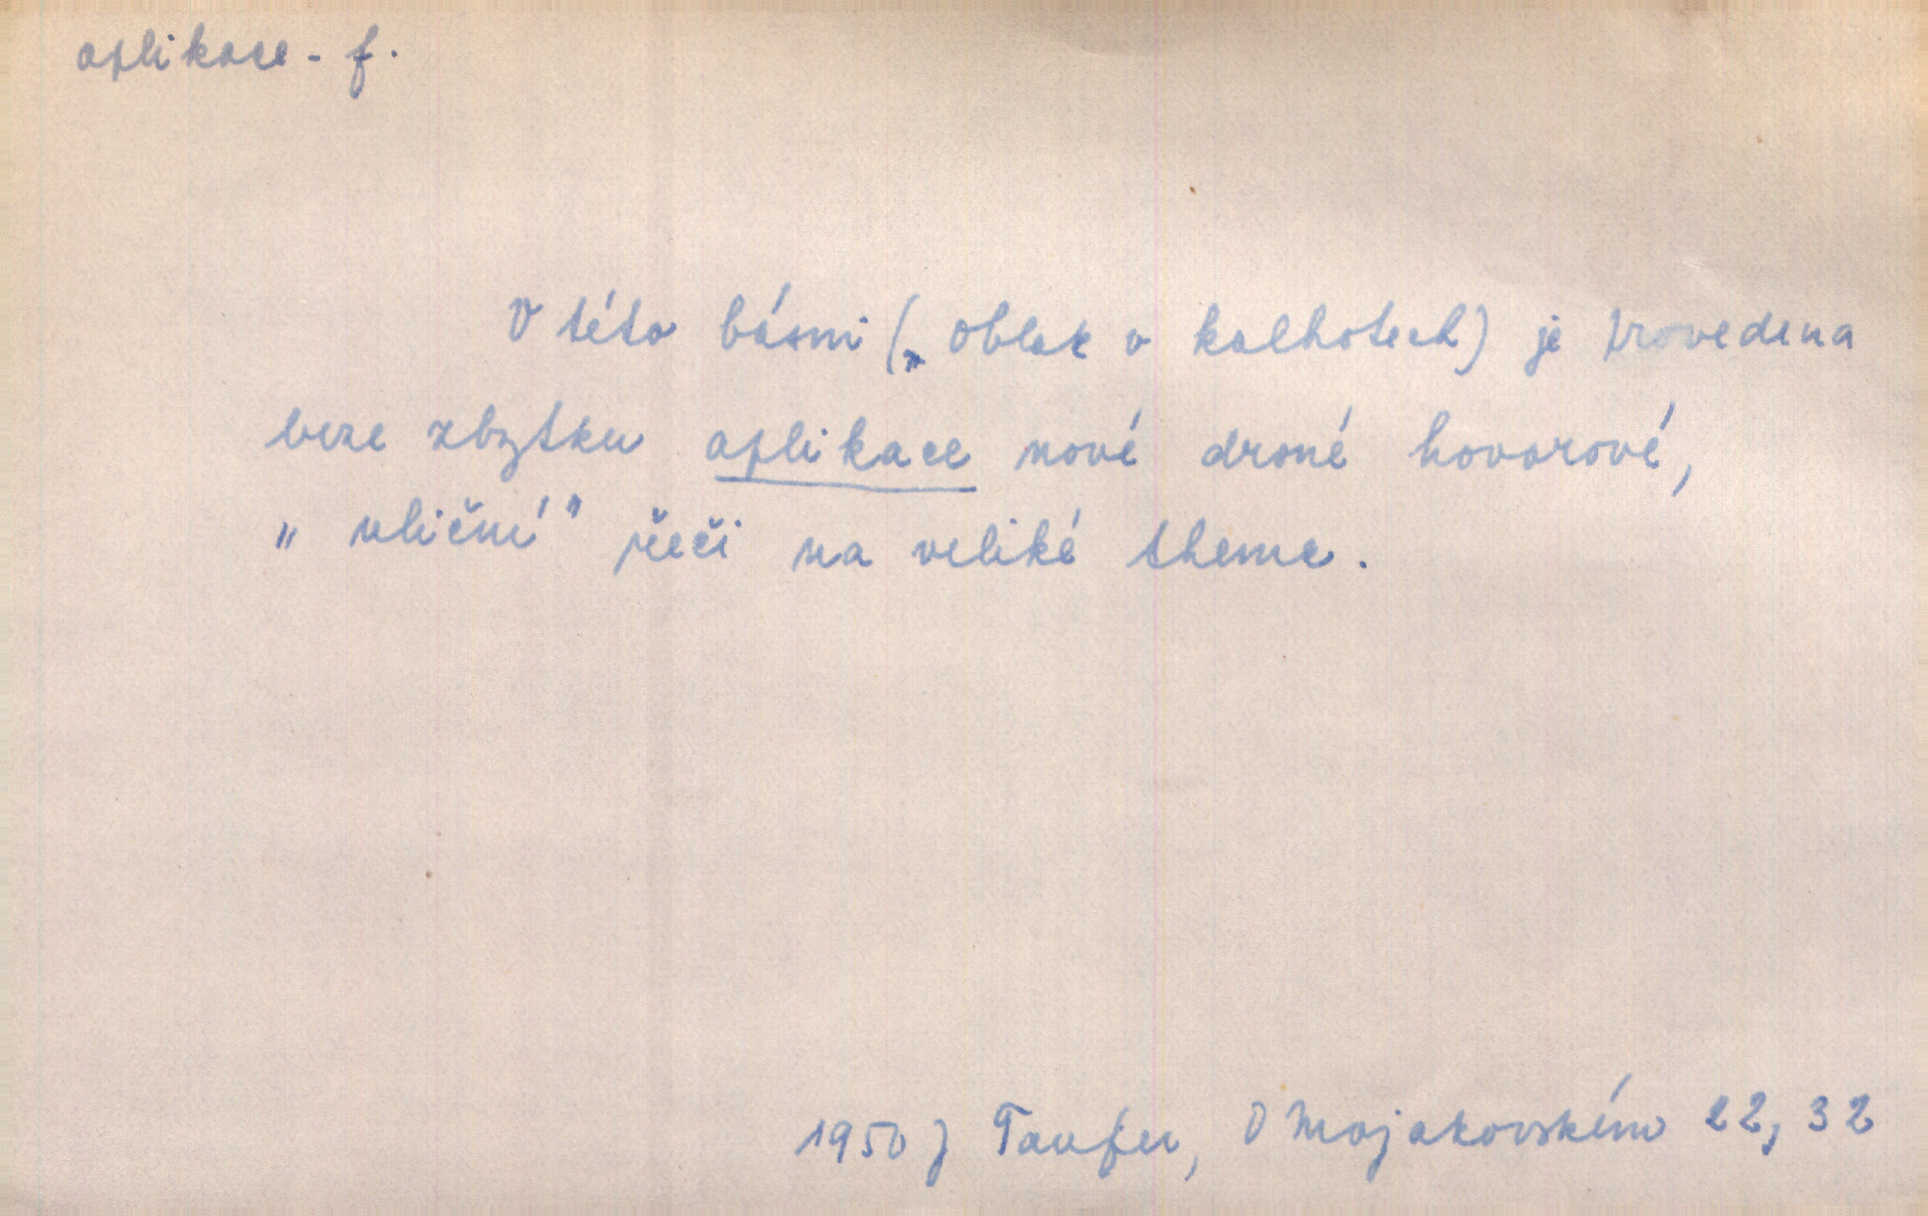 aplikace - f.
V této básni („Oblak v kalhotech) je provedena
beze zbytku aplikace nové drsné hovorové,
„uliční" řeči na veliké thema.
1950 J Taufer, O Majakovském 22, 32